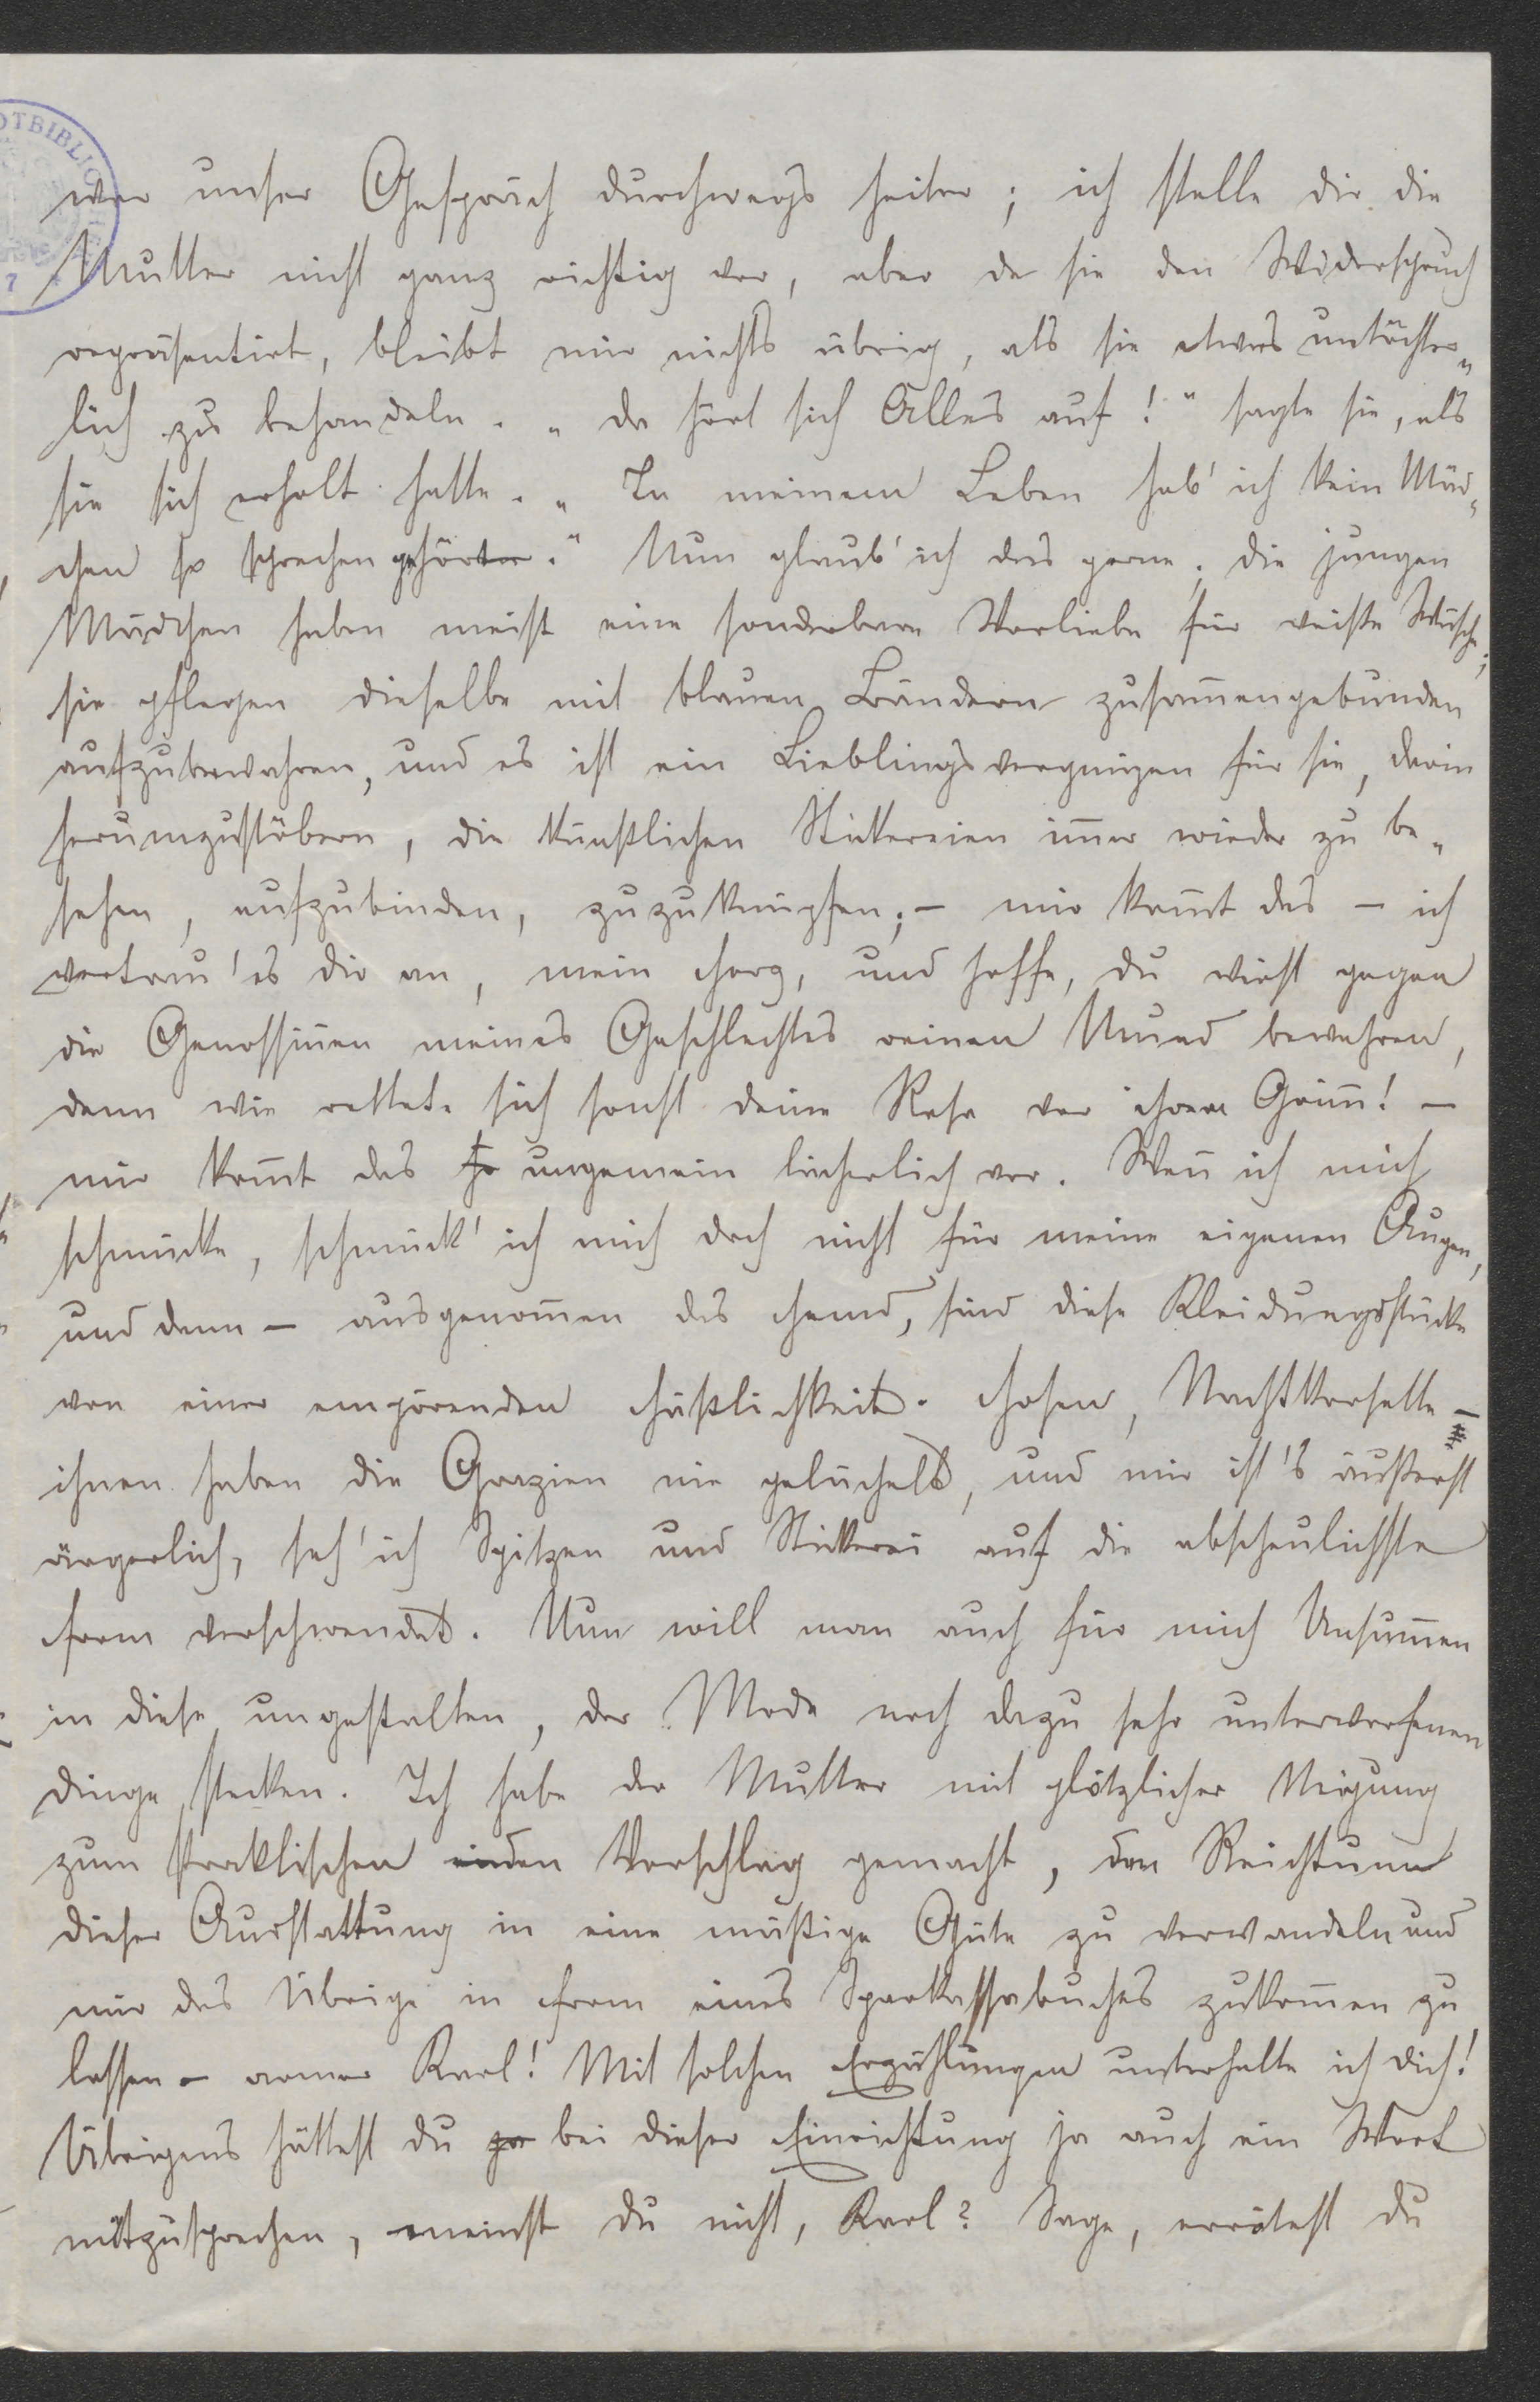 war unser Gespräch durchwegs heiter; ich stelle dir die
Mutter nicht ganz richtig vor, aber da sie den Widerspruch
repräsentirt, bleibt mir nichts übrig, als sie etwas untöchter„
lich zu behandeln. „Da hört sich Alles auf!“ sagte sie, als
sie sich erholt hatte. „In meinem Leben hab' ich kein Mäd„
chen so sprechen gehört.“ Nun glaub' ich das gerne; die jungen
Mädchen haben meist eine sonderbare Vorliebe für weiße Wäsche;
sie pflegen dieselbe mit blauen Bändern zusam̅engebunden
aufzubewahren, und es ist ein Lieblingsvergnügen für sie, darin
herumzustöbern, die künstlichen Stickereien im̅er wieder zu be„
sehen, aufzubinden, zuzuknüpfen; – mir kom̅t das – ich
vertrau' es dir an, mein Herz, und hoffe, du wirst gegen
die Genossin̅en meines Geschlechtes reinen Mund bewahren,
denn wie rettete sich sonst deine Rosa vor ihrem Grim̅! –
mir kom̅t das so ungemein lächerlich vor. Wen̅ ich mich
schmücke, schmück' ich mich doch nicht für meine eigenen Augen,
und dann – ausgenom̅en das Hemd, sind diese Kleidungsstücke
von einer empörenden Häßlichkeit. Hosen, Nachtkorsette –
ihnen haben die Grazien nie gelächelt, und mir ist's äußerst
ärgerlich, seh' ich Spitzen und Stickerei auf die abscheulichste
Form verschwendet. Nun will man auch für mich Unsum̅en
in diese ungestalten, der Mode noch dazu sehr unterworfenen
Dinge stecken. Ich habe der Mutter mit plötzlicher Neigung
zum Praktischen den Vorschlag gemacht, den Reichtum
dieser Ausstattung in eine mäßige Güte zu verwandeln und
mir das Übrige in Form eines Sparkassabuches zukom̅en zu
lassen – armer Karl! Mit solchen Erzählungen unterhalte ich dich!
Übrigens hättest du ja bei dieser Einrichtung ja auch ein Wort
mitzusprechen, meinst du nicht, Karl? Sage, errötest du